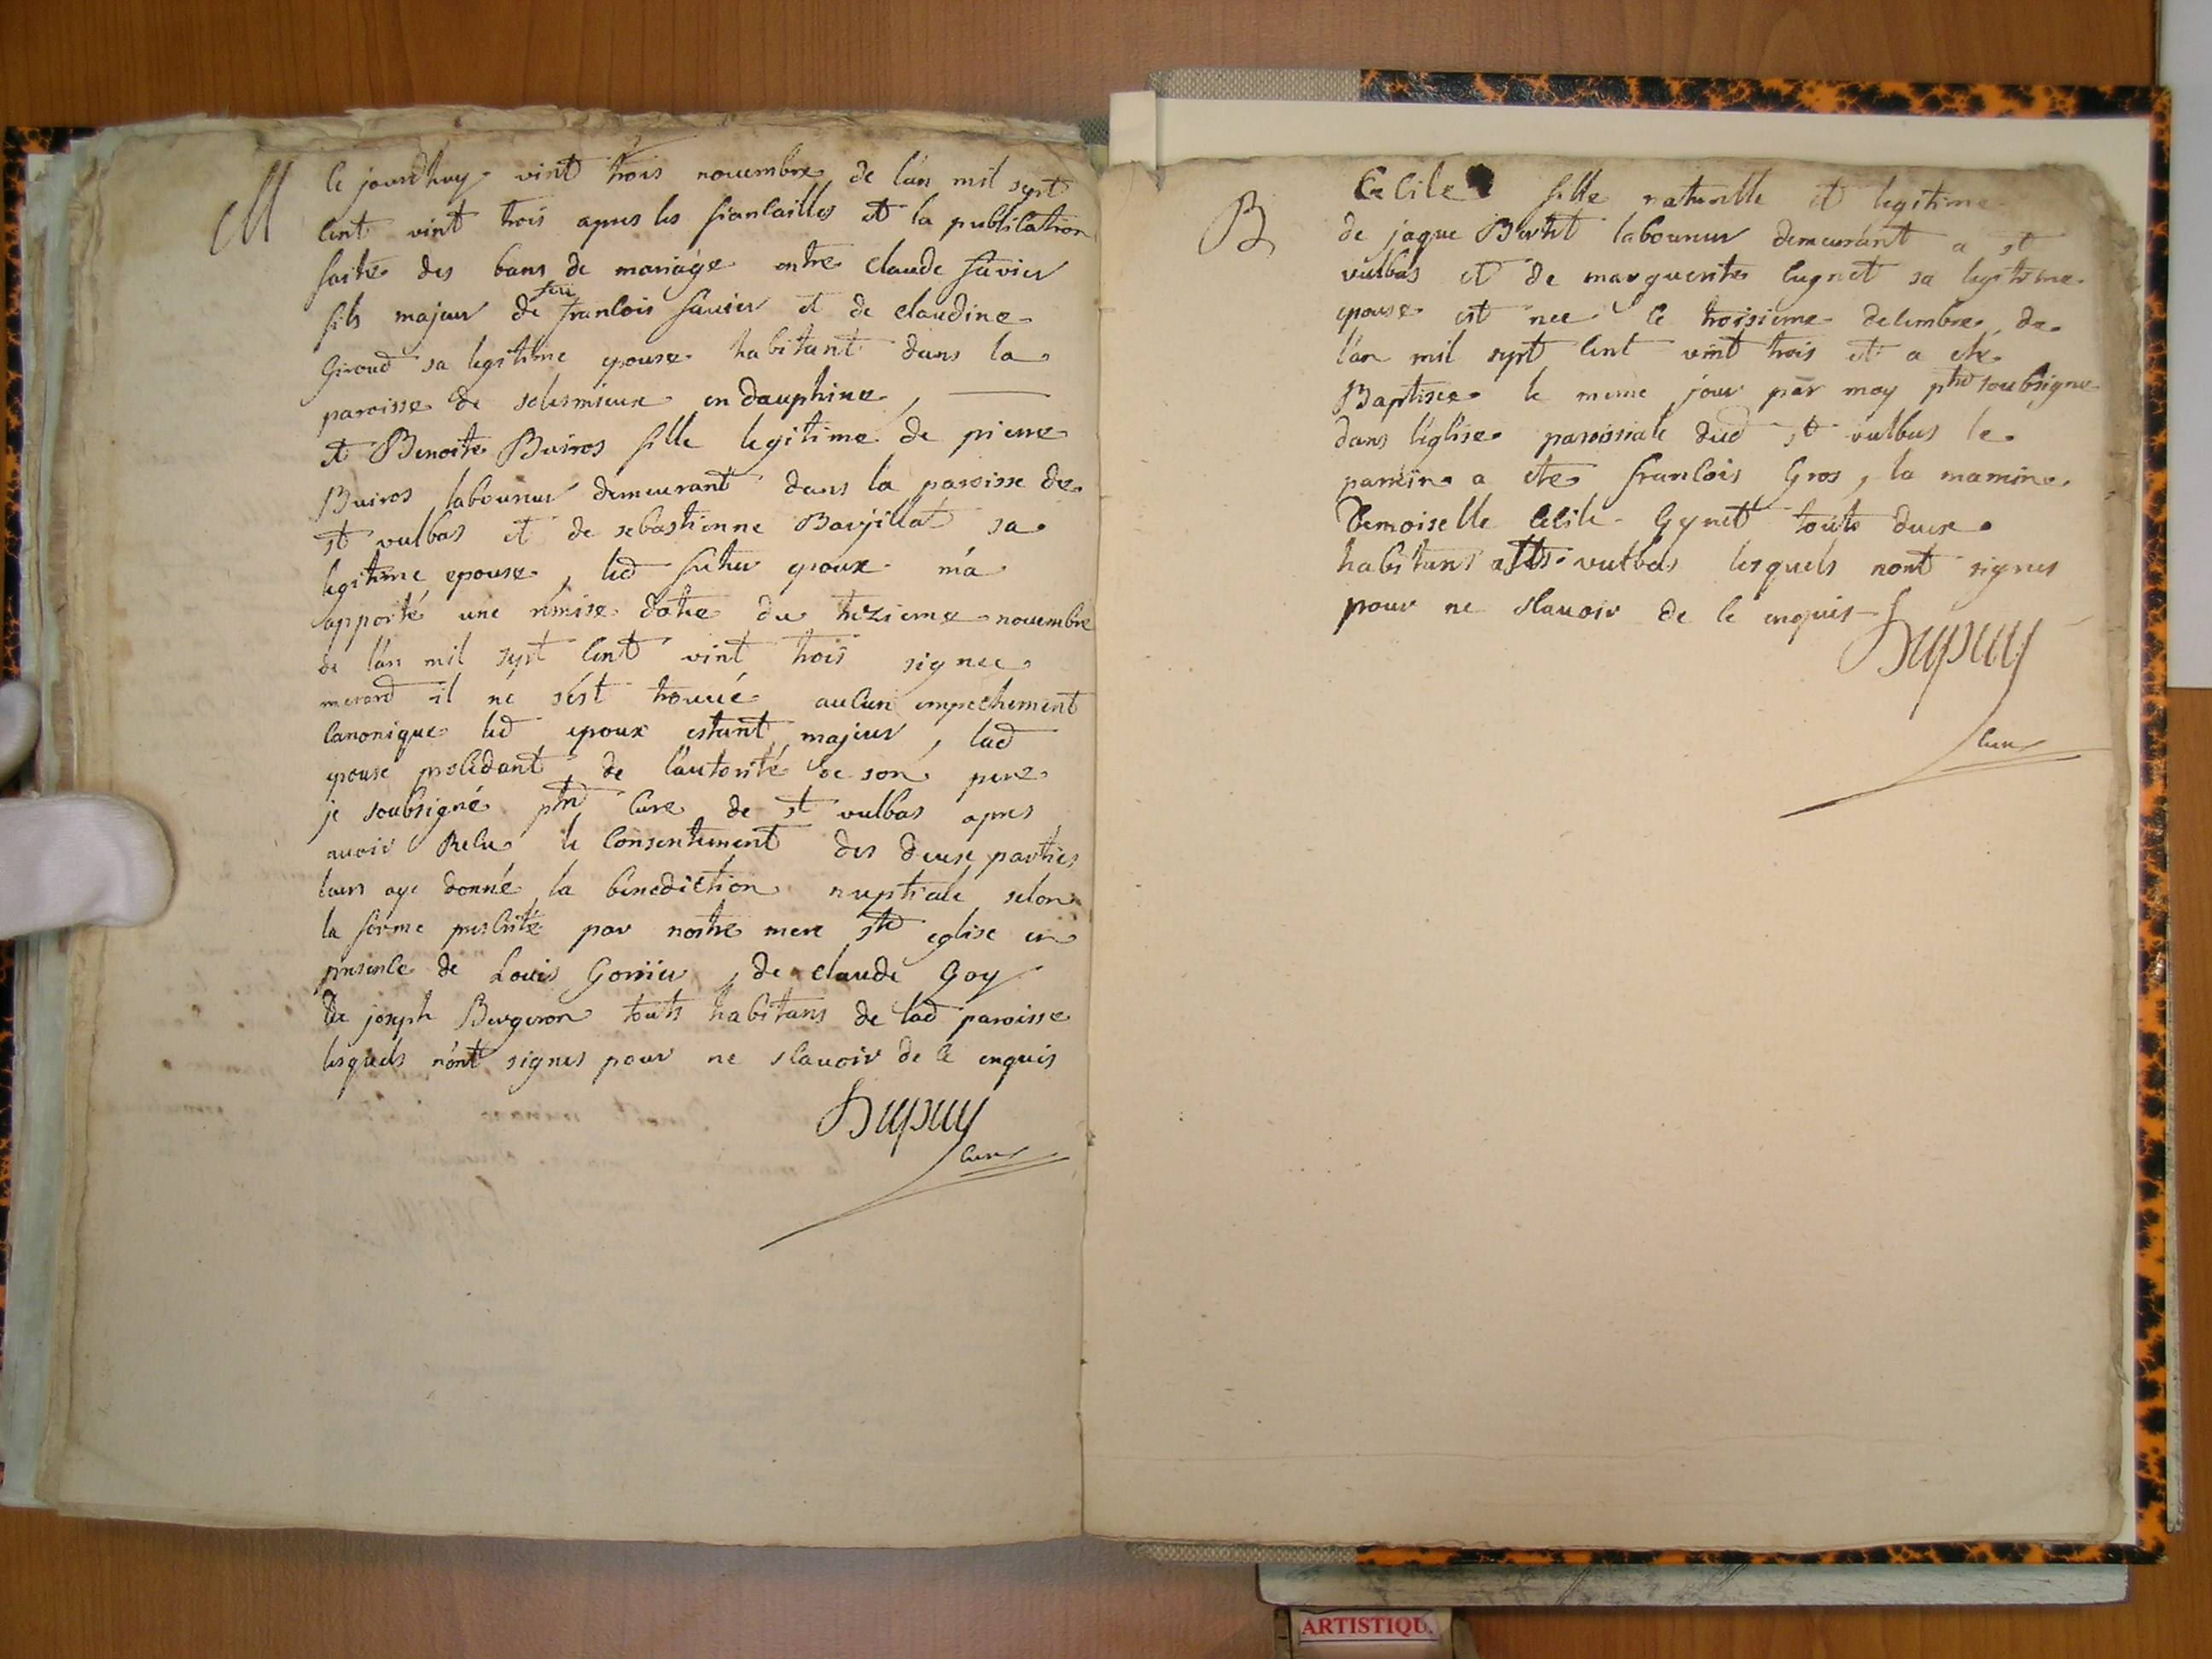 M
Ce jourdhuy vint trois nouembre de l'an mil sept
cent vint trois apres les fiancailles et la publication
faite des bans de mariage entre claude favier
fils majeur de feu francois favier et de claudine
Giroud sa legitime epouse habitant dans la
paroisse de solesmieux en dauphine,
et Benoite Buiros fille legitime de pierre
Buiros laboureur demeurant dans la paroisse de
st vulbas et de sebastienne Barjillat sa
legitime epouse, led futur epoux m'a
apporté une remise datée du trezieme nouembre
de l'an mil sept cent vint trois signee
il ne s'est trouué aucun empechement
canonique led epoux estant majeur, lad
epouse procedant de l'autorité de son pere
je soubsigné ptre curé de st vulbas apres
auoir recu le consentement des deux parties
leurs aye donné la benediction nuptiale selon
la forme prescrite par nostre mere ste eglise en
presence de Louis Gorrier, de claude Goy
de joseph Bergeron touts habitans de lad paroisse
lesquels n'ont signes pour ne scauoir de ce enquis
Dupuy
curé
B
Cecile fille naturelle et legitime
de jaque Bertet laboureur demeurant a st
vulbas et de marguerite Cugnet sa legitime
epouse est nee le troisieme decembre de
l'an mil sept cent vint trois et a ete
Baptisee le meme jour par moy ptre soubsigne
dans l'eglise paroissiale dud st vulbas le
parrein a ete francois Gros, la marrine
Demoiselle Cecile Gynet touts deux
habitans a st vulbas lesquels nont signes
pour ne scauoir de ce enquis
Dupuy
curé
ARTISTIQU